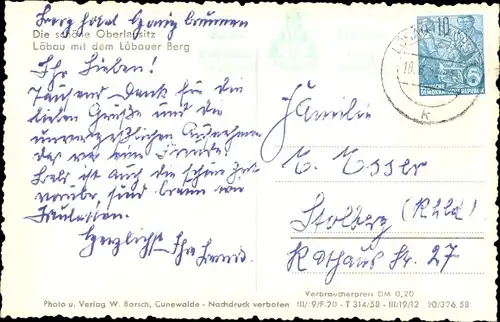 Berghotel Honigbrunnen
Die schöne Oberlausitz
Löbau mit dem Löbauer Berg
Ihr Lieben!
Tausend Dank für die
lieben Grüße und die
unvergeßlichen Aufnahmen
das war eine Freude
bald ist auch die schöne Zeit
vorüber, sind braun wie
Herzlichst Ihre
Familie
E. Esser
Stolberg (Rhld.)
Rathaus Str. 27
LÖBAU
10
DEUTSCHE
DEMOKRATISCHE REPUBLIK
k
Verbraucherpreis DM 0,20
Photo u. Verlag W. Borsch, Cunewalde - Nachdruck verboten III/9/F-20 - T 314/58 - III/19/12 20/326.58